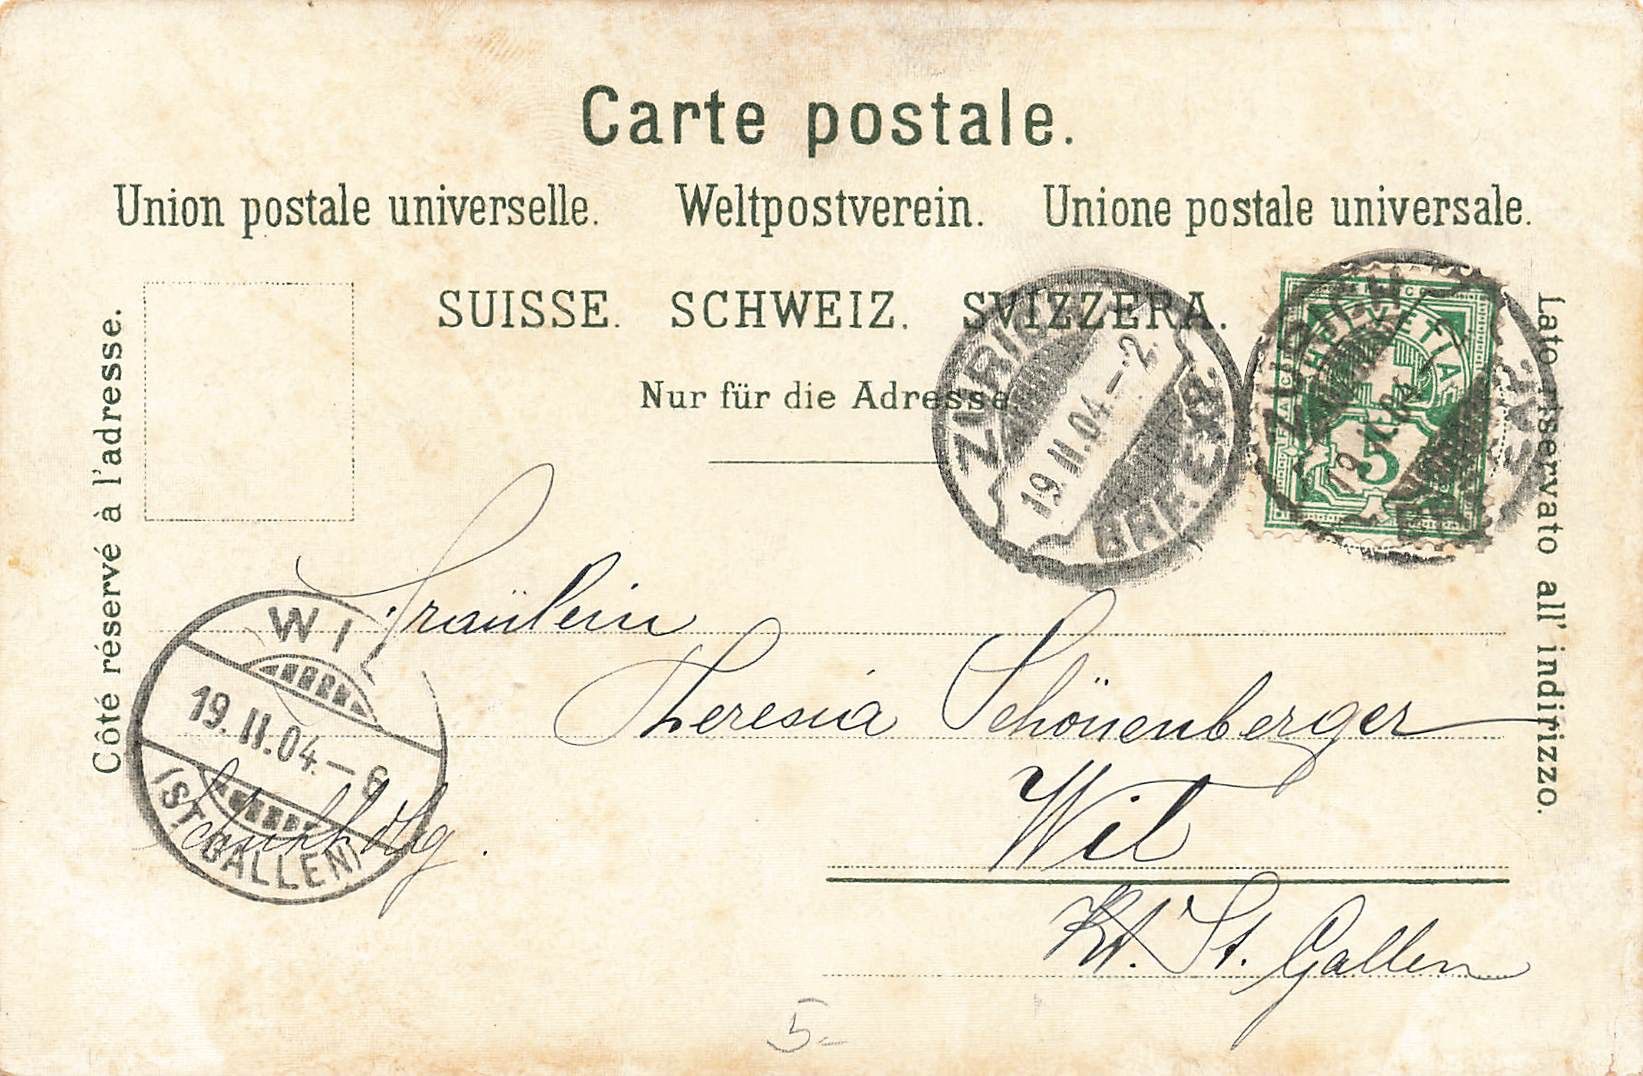 Carte postale.
Union postale universelle. Weltpostverein. Unione postale universale.
SUISSE. SCHWEIZ. SVIZZERA.
Nur für die Adresse
Côté réservé à l'adresse.
Lato riservato all' indirizzo.
ZÜRICH
19.II.04.-2.
BRF. EXP.
HELVETIA
5
ZÜRICH
19.II.04
WIL
19.II.04.-6
(ST. GALLEN)
Fräulein
Theresia Schönenberger
Wil
Kt. St. Gallen
5.-